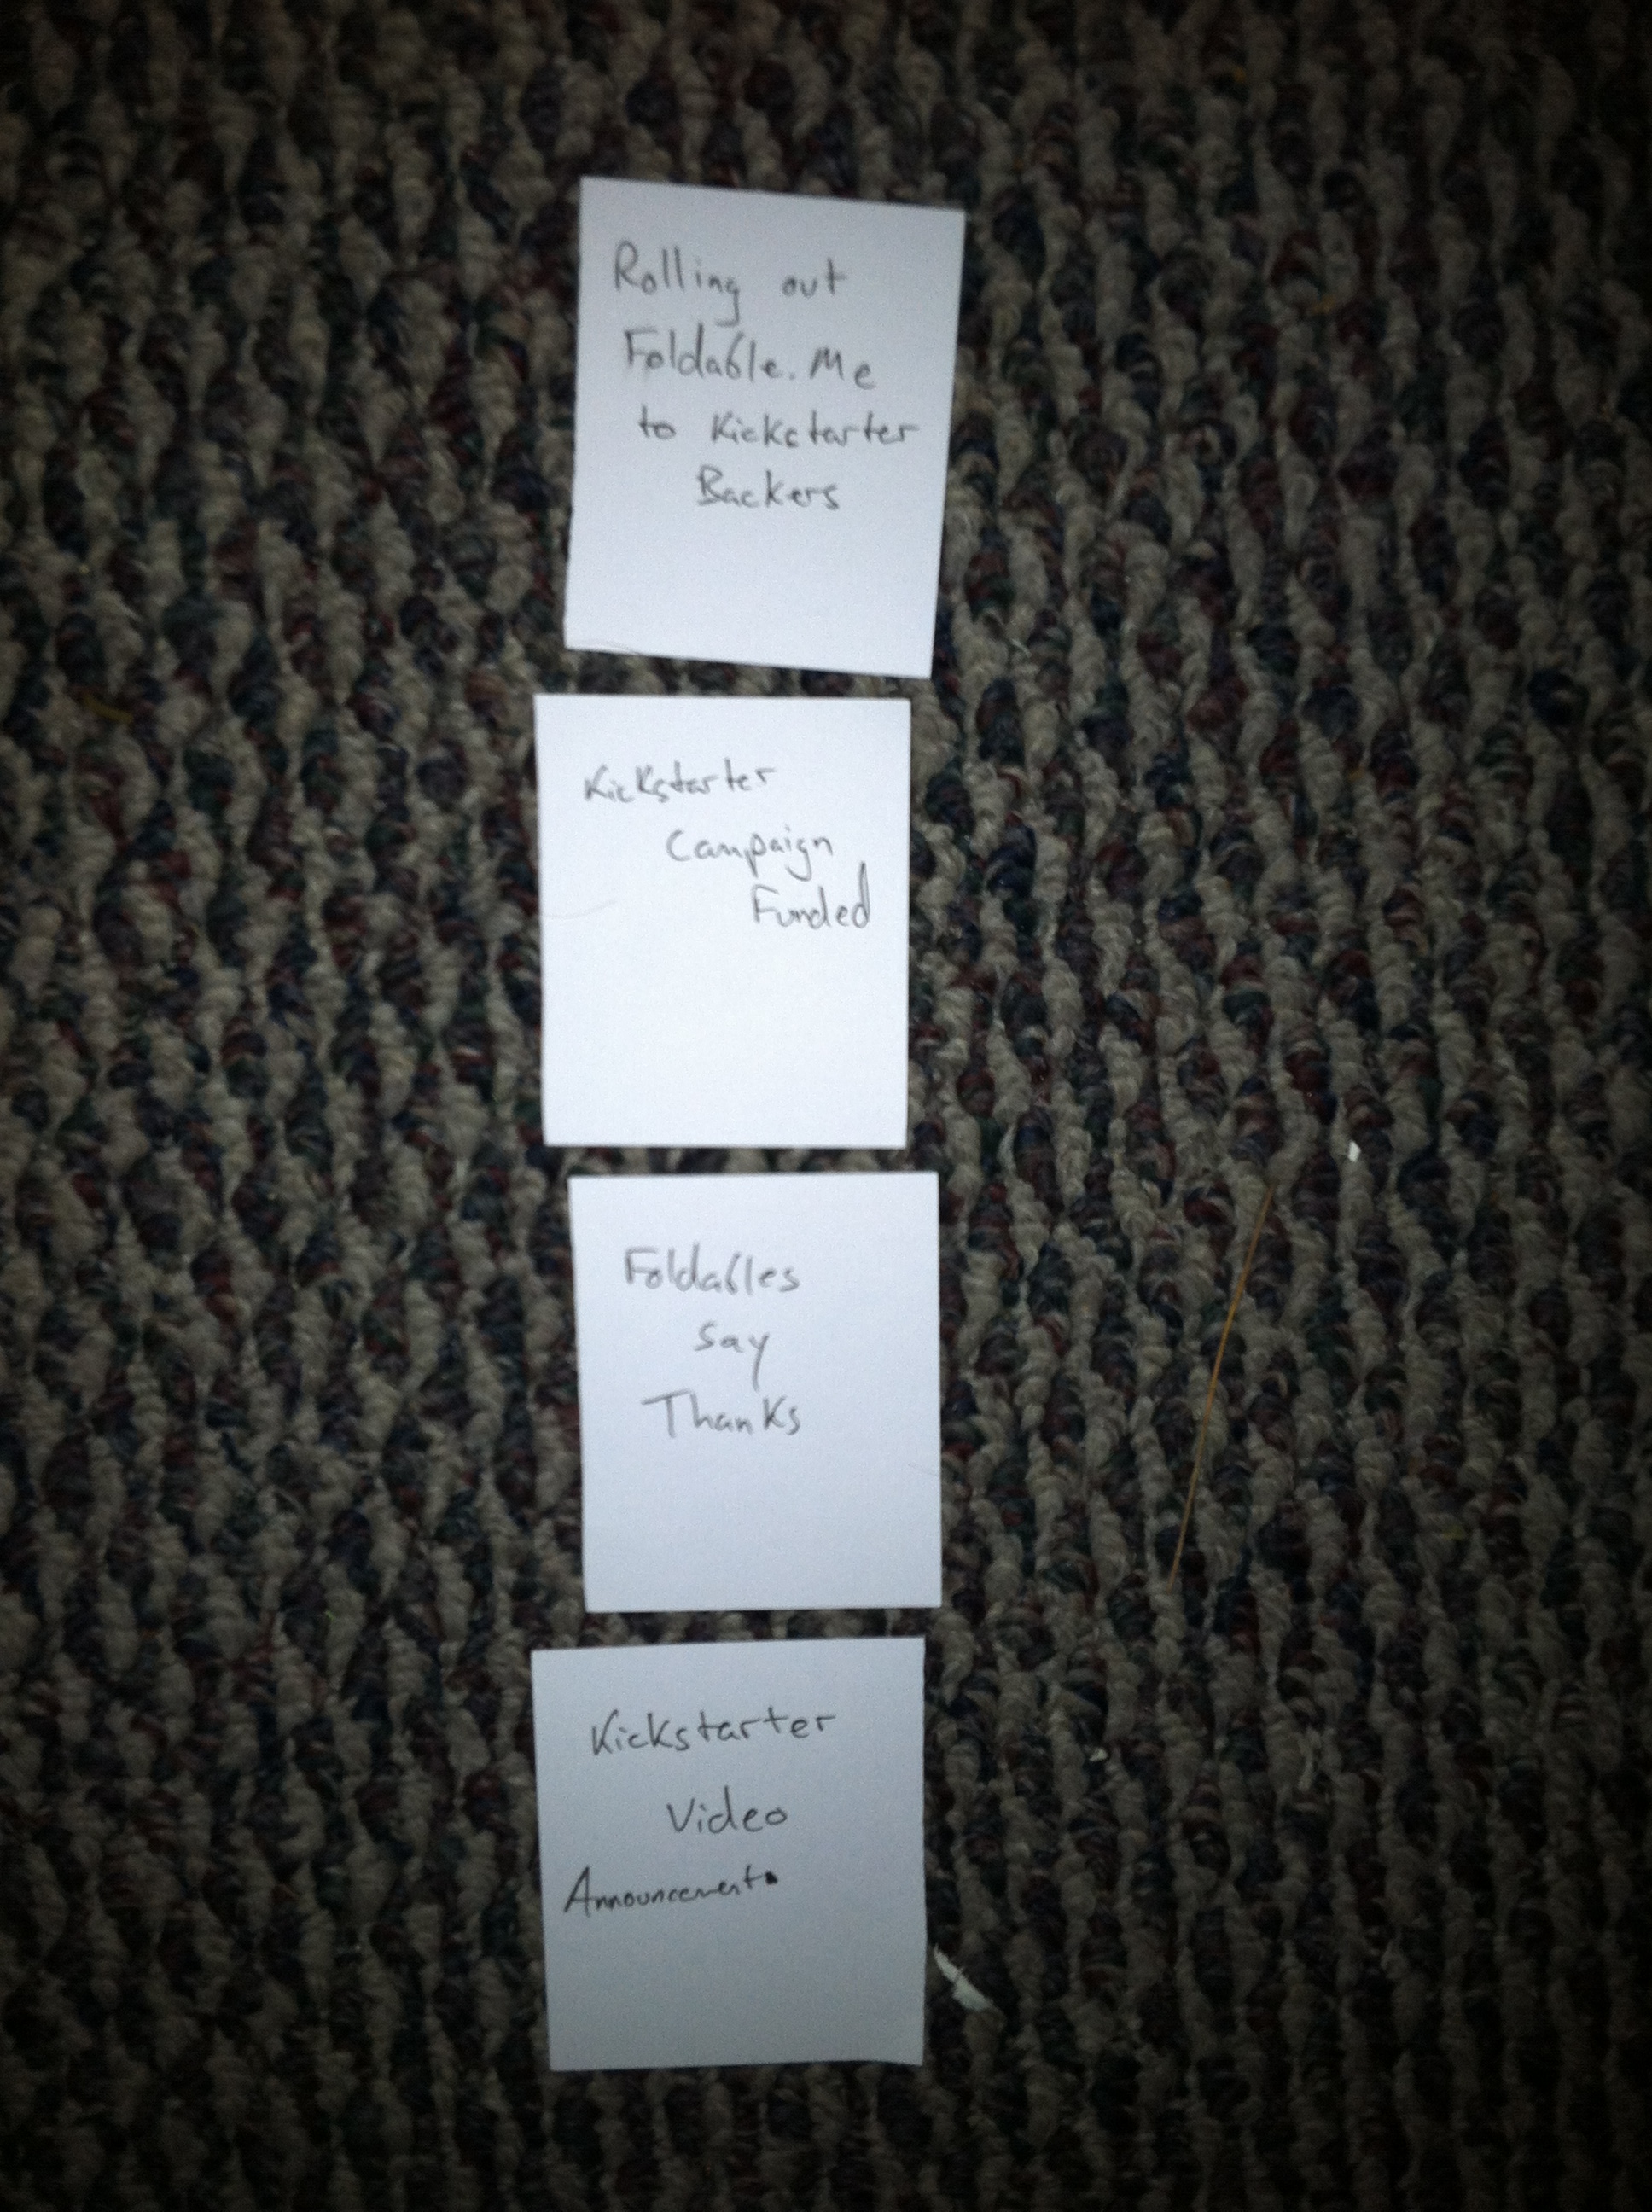 Rolling out
Foldable.Me
to Kickstarter
Backers
Kickstarter
Campaign
Funded
Foldables
Say
Thanks
Kickstarter
Video
Announcement